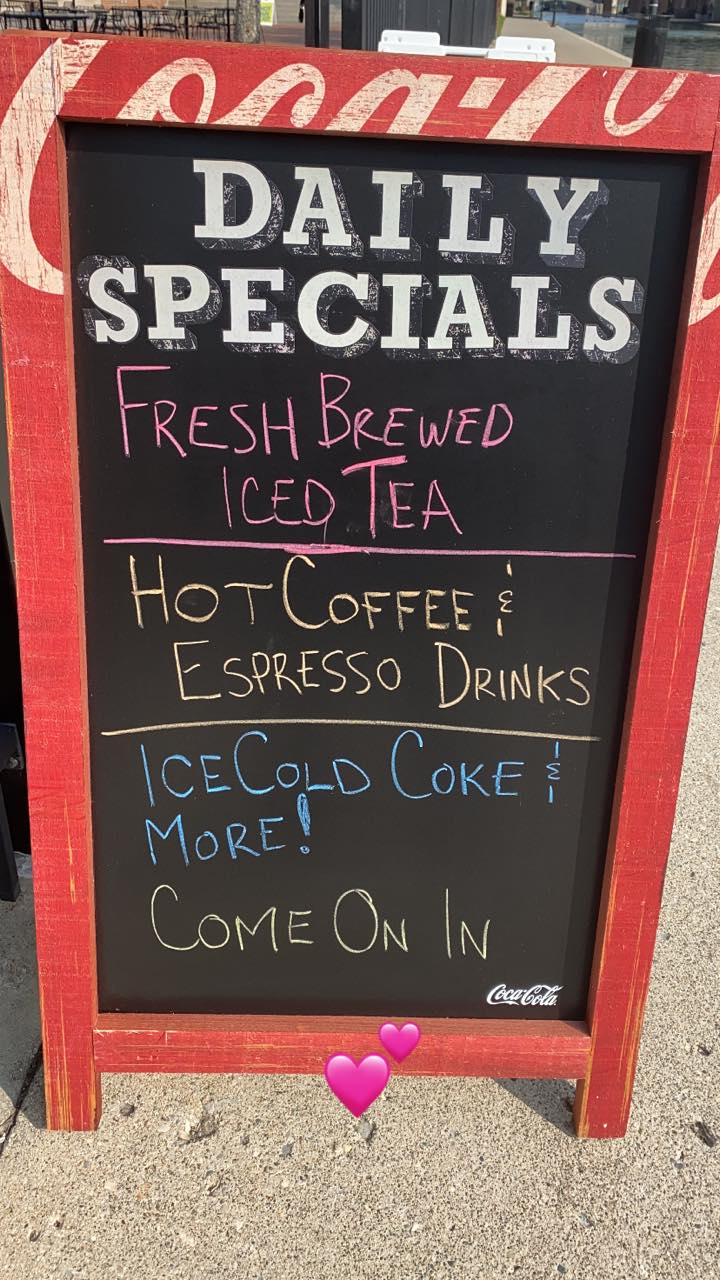 Coca-Co
DAILY
SPECIALS
FRESH BREWED
ICED TEA
HOT COFFEE &
ESPRESSO DRINKS
ICE COLD COKE &
MORE!
COME ON IN
Coca-Cola